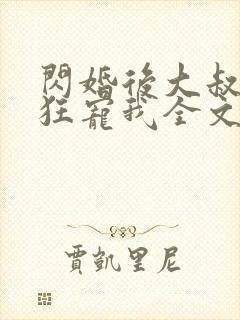 閃婚後大叔
狂寵我全文
賈凱里尼